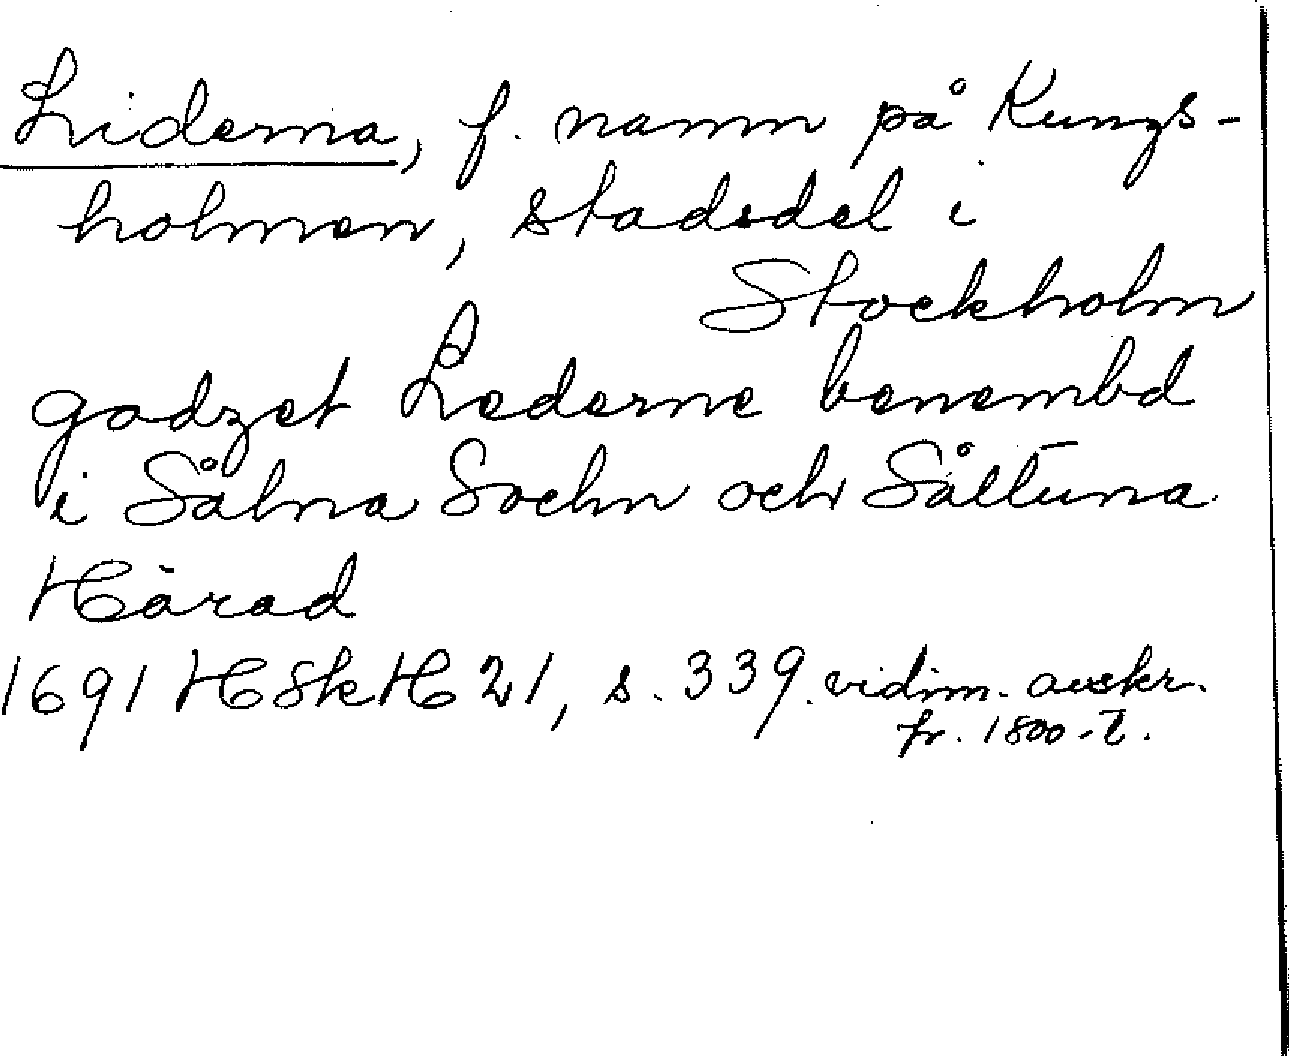 Liderna, f. namn på Kungs-
holmen, stadsdel i
Stockholm
godzet Lederne benembd
i Sålna Sochn och Såltuna
Härad
1691 HSkH 21, s. 339. vidim. avskr.
fr. 1800-t.